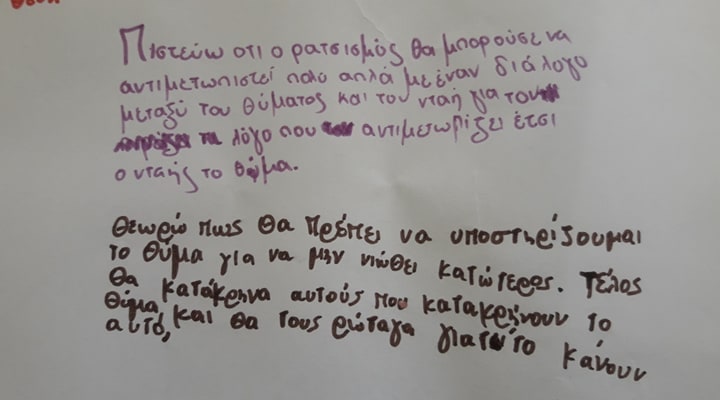 Πιστεύω οτι ο ρατσισμός θα μπορούσε να
αντιμετωπιστεί πολύ απλά με έναν διάλογο
μεταξύ του θύματος και του νταή για τον
λόγο που αντιμετωπίζει έτσι
ο νταής το θύμα.
Θεωρώ πως θα πρέπει να υποστηρίζουμαι
το θύμα για να μην νιώθει κατώτερος. Τέλος
θα κατάκρηνα αυτούς που κατακρήνουν το
θύμα, και θα τους ρώταγα γιατί το κάνουν
αυτό,